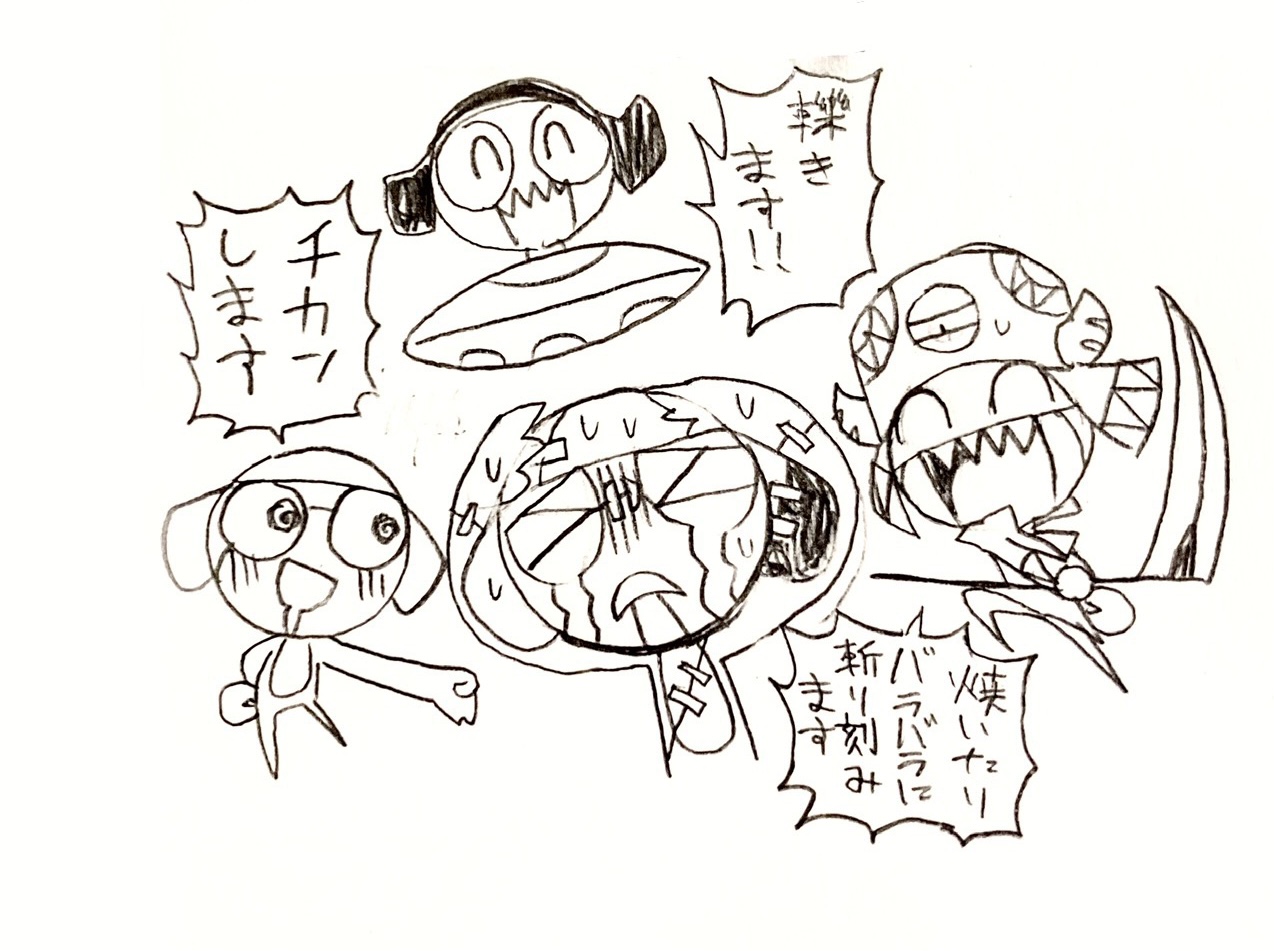 轢き
ます!!
チカン
します
焼いたり
バラバラに
斬り刻み
ます